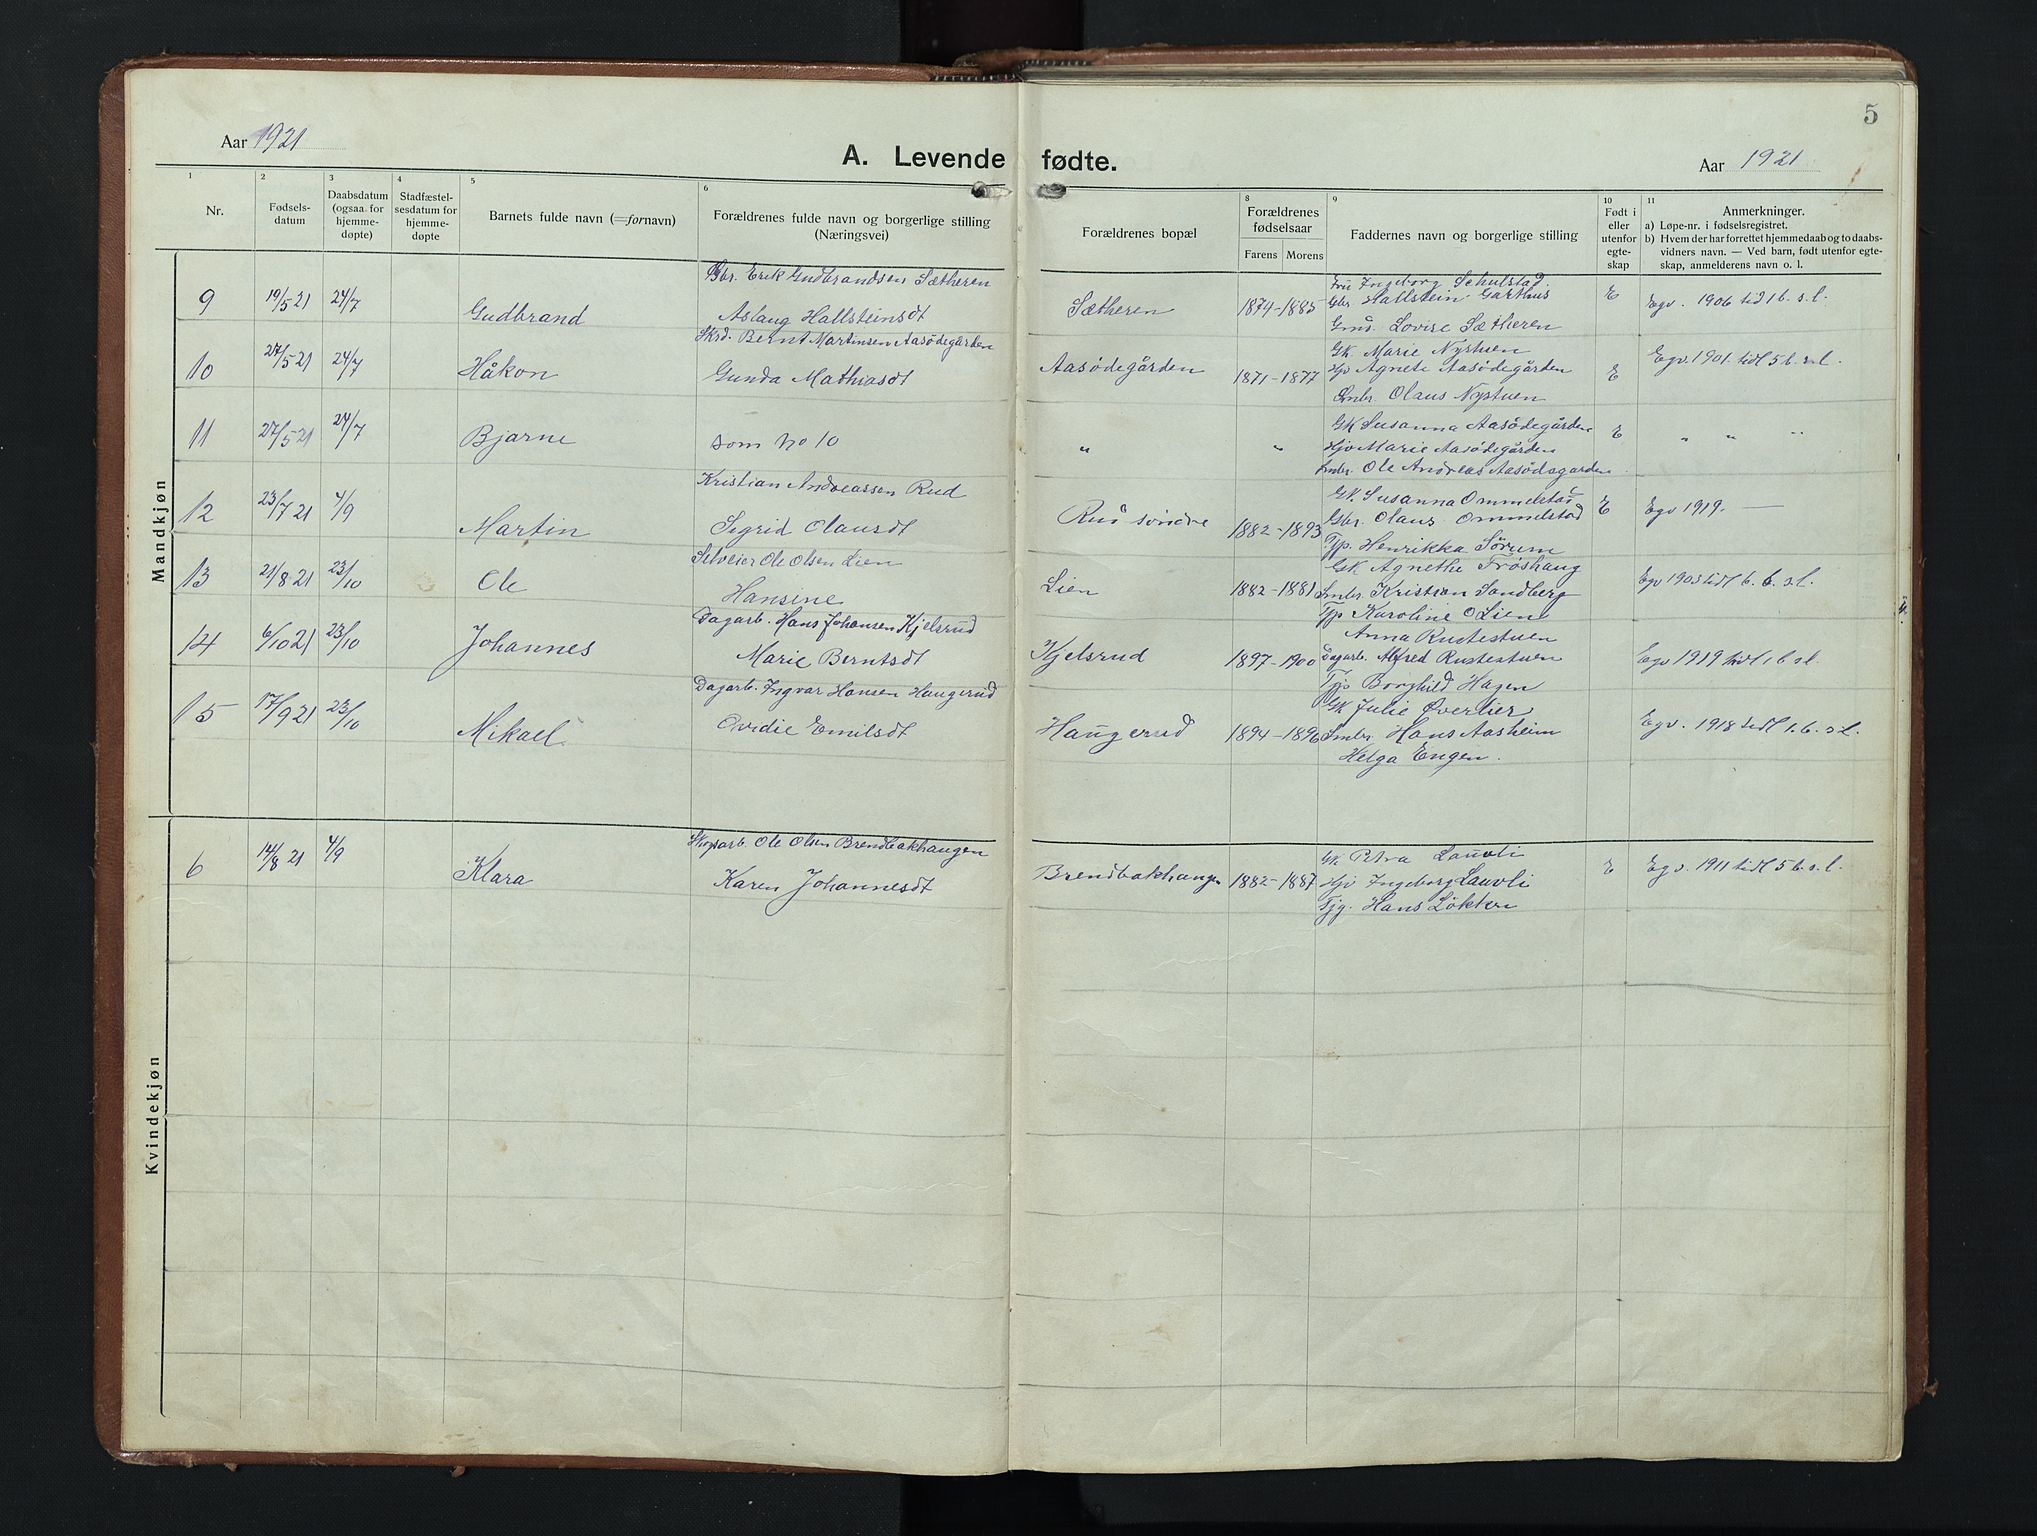 5
Aar 1921
A. Levende fødte.
Aar 1921
1 Nr.
2 Fødsels-datum
3 Daabsdatum (ogsaa for hjemme-døpte)
4 Stadfæstel-sesdatum for hjemme-døpte
5 Barnets fulde navn (=fornavn)
6 Forældrenes fulde navn og borgerlige stilling (Næringsvei)
Forældrenes bopæl
8 Forældrenes fødselsaar
Farens Morens
9 Faddernes navn og borgerlige stilling
10 Født i eller utenfor egte-skap
11 Anmerkninger.
a) Løpe-nr. i fødselsregistret.
b) Hvem der har forrettet hjemmedaab og to daabs-vidners navn. — Ved barn, født utenfor egte-skap, anmelderens navn o. l.
Mandkjøn
Gbr. Erik Gudbrandsen Sætheren
9 19/5 21 24/7 Gudbrand Aslaug Hallsteinsdt Sætheren 1874-1885
Fru Ingeborg Schulstad.
Gbr Hallstein Garthus
Gmd. Lovise Sætheren
E Egv. 1906 tid 1 b. s. l.
Skrd. Bernt Martinsen Aasødegården
10 27/5 21 24/7 Håkon Gunda Mathiasdt Aasødegården 1871-1877
GK. Marie Nystuen
Hjv Agnete Aasødegården
Gmbr. Olaus Nystuen
E Egv. 1901. tidl 5 b. s. l.
11 27/5 21 24/7 Bjarne som no 10 " "
GK Susanna Aasødegården
Hjv Marie Aasødegården
Smbr. Ole Andreas Aasødegarden
E " " "
Kristian Andreassen Rud
12 23/7 21 4/9 Martin Sigrid Olausdt Rud søndre 1882-1893
GK. Susanna Ommelstad
Gbr. Olaus Ommelstad
Tjp. Henrikka Sørum
E Egv 1919. —
Selveier Ole Olsen Lien
13 21/8 21 23/10 Ole Hansine Lien 1882-1881
GK Agnethe Frøshaug
Smbr Kristian Sandberg
Tjp Karoline O Lien
Egv 1903 tidl 6. b. s. l.
Dagarb. Hans Johansen Kjelsrud
14 6/10 21 23/10 Johannes Marie Berntsdt Kjelsrud 1897-1900
Anna Rustestuen
Dagarb. Alfred Rustestuen
Tjp Borghild Hagen
Egv 1919 tidl 1 b sl.
Dagarb. Ingvar Hansen Haugerud
15 17/9 21 23/10 Mikael Ovidie Emilsdt Haugerud 1894-1896
GK Julie Øverlier
Smbr Hans Aasheim
Helga Engen.
Egv. 1918 tidl 1. b. s l.
Kvindekjøn
Skogsarb. Ole Olsen Brendbakhaugen
6 14/8 21 4/9 Klara Karen Johannesdt Brendbakhaugen 1882-1887
GK. Petra Lauvli
Hjv Ingeborg Lauvli
Tjg. Hans Løkken
E Egv. 1911 tidl 5 b. s. l.